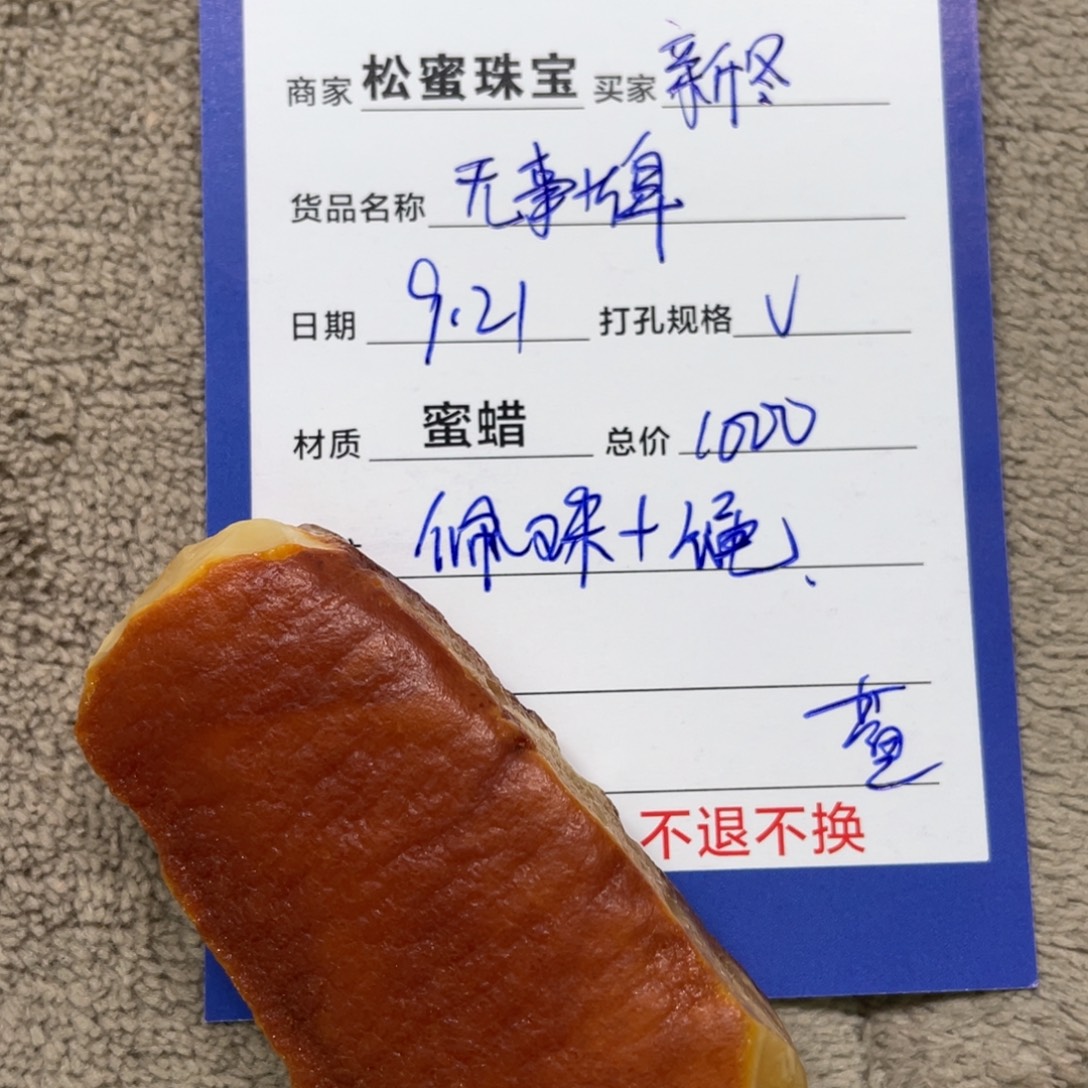 商家 松蜜珠宝 买家 新冬
货品名称 无事牌
日期 9.21 打孔规格 V
材质 蜜蜡 总价 1000
佩珠+绳、
不退不换